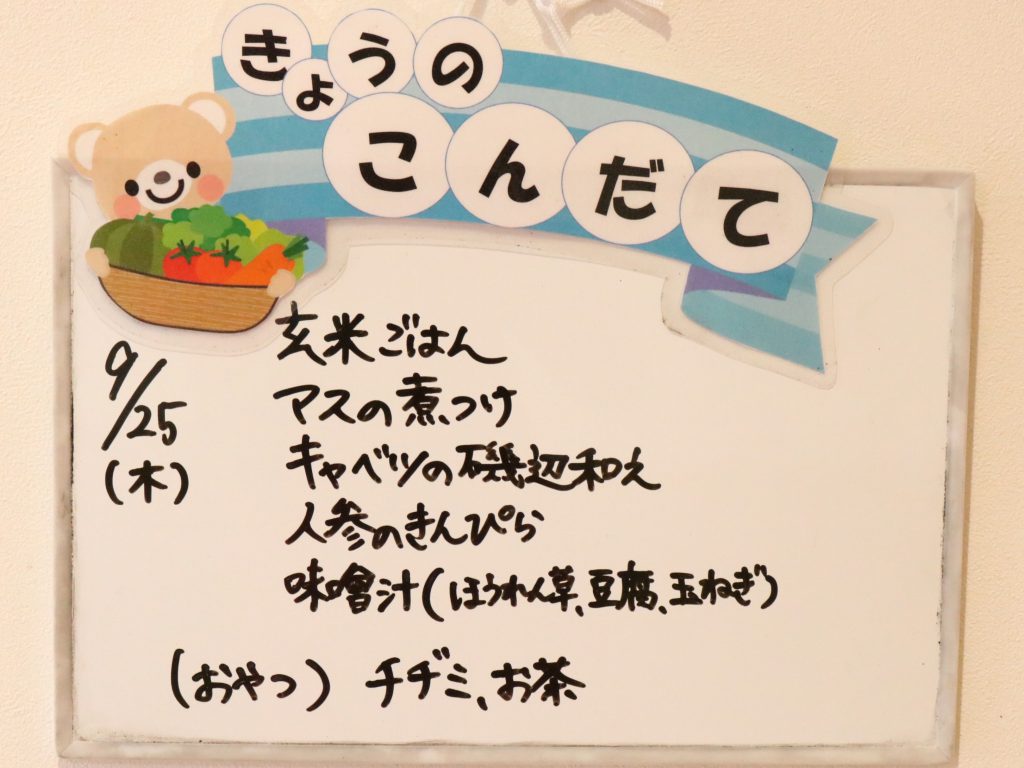 きょうの
こんだて
9/25
(木)
玄米ごはん
マスの煮つけ
キャベツの磯辺和え
人参のきんぴら
味噌汁(ほうれん草、豆腐、玉ねぎ)
(おやつ) チヂミ、お茶